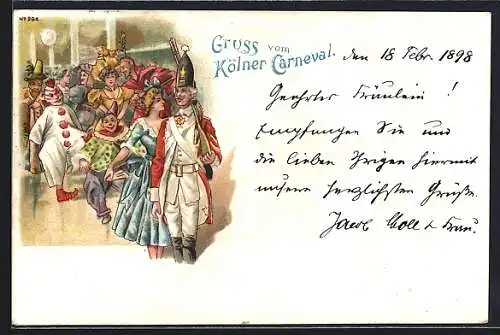 No 294.
Gruss vom
Kölner Carneval.
den 18 Febr. 1898
Geehrtes Fräulein!
Empfangen Sie und
die lieben Ihrigen hiermit
unsere herzlichsten Grüße.
Jacob Moll & Frau.